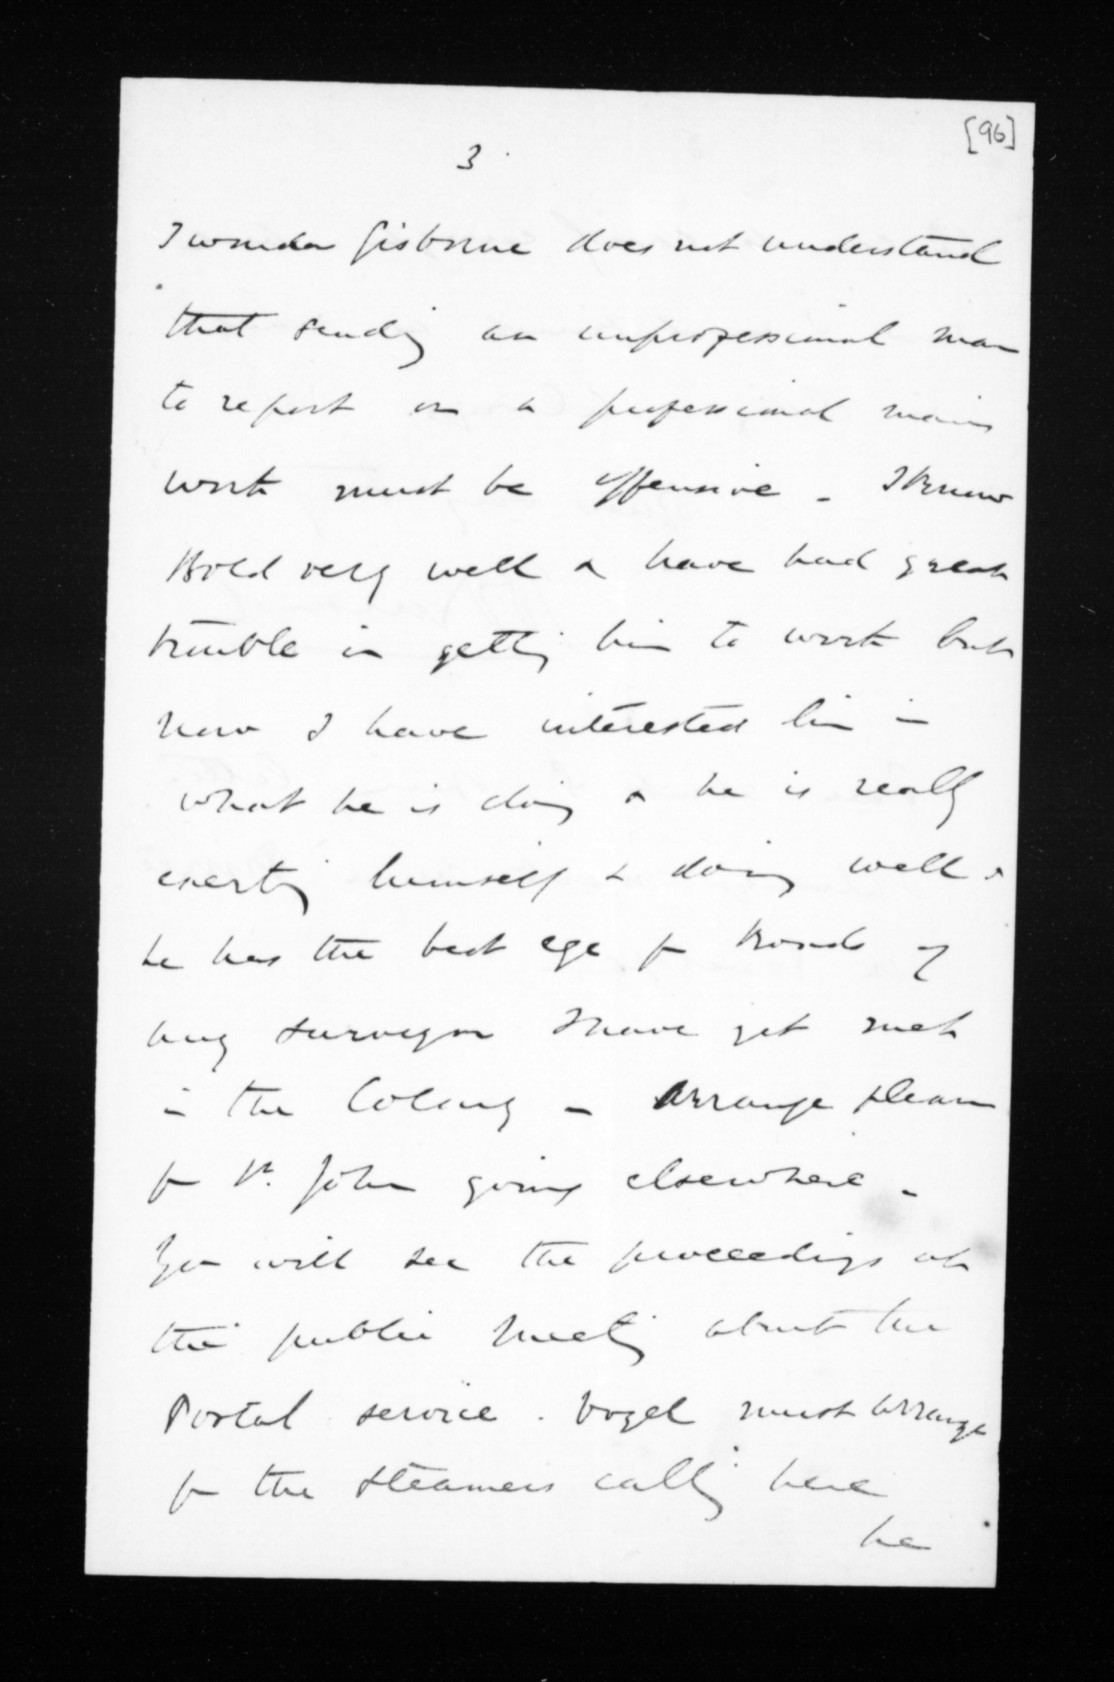 [96]
3.
I wonder Gisborne does not understand
that sending an unprofessional man
to report on a professional mans
work must be offensive - I know
Bold very well & have had great
trouble in getting him to work but
now I have interested him in
what he is doing & he is really
exerting himself & doing well &
he has the best eye for Roads of
any surveyor I have yet met
in the Colony - Arrange please
for St. John going elsewhere -
You will see the proceedings at
the public meeting about the
Postal service. Vogel must arrange
for the steamers calling here
he